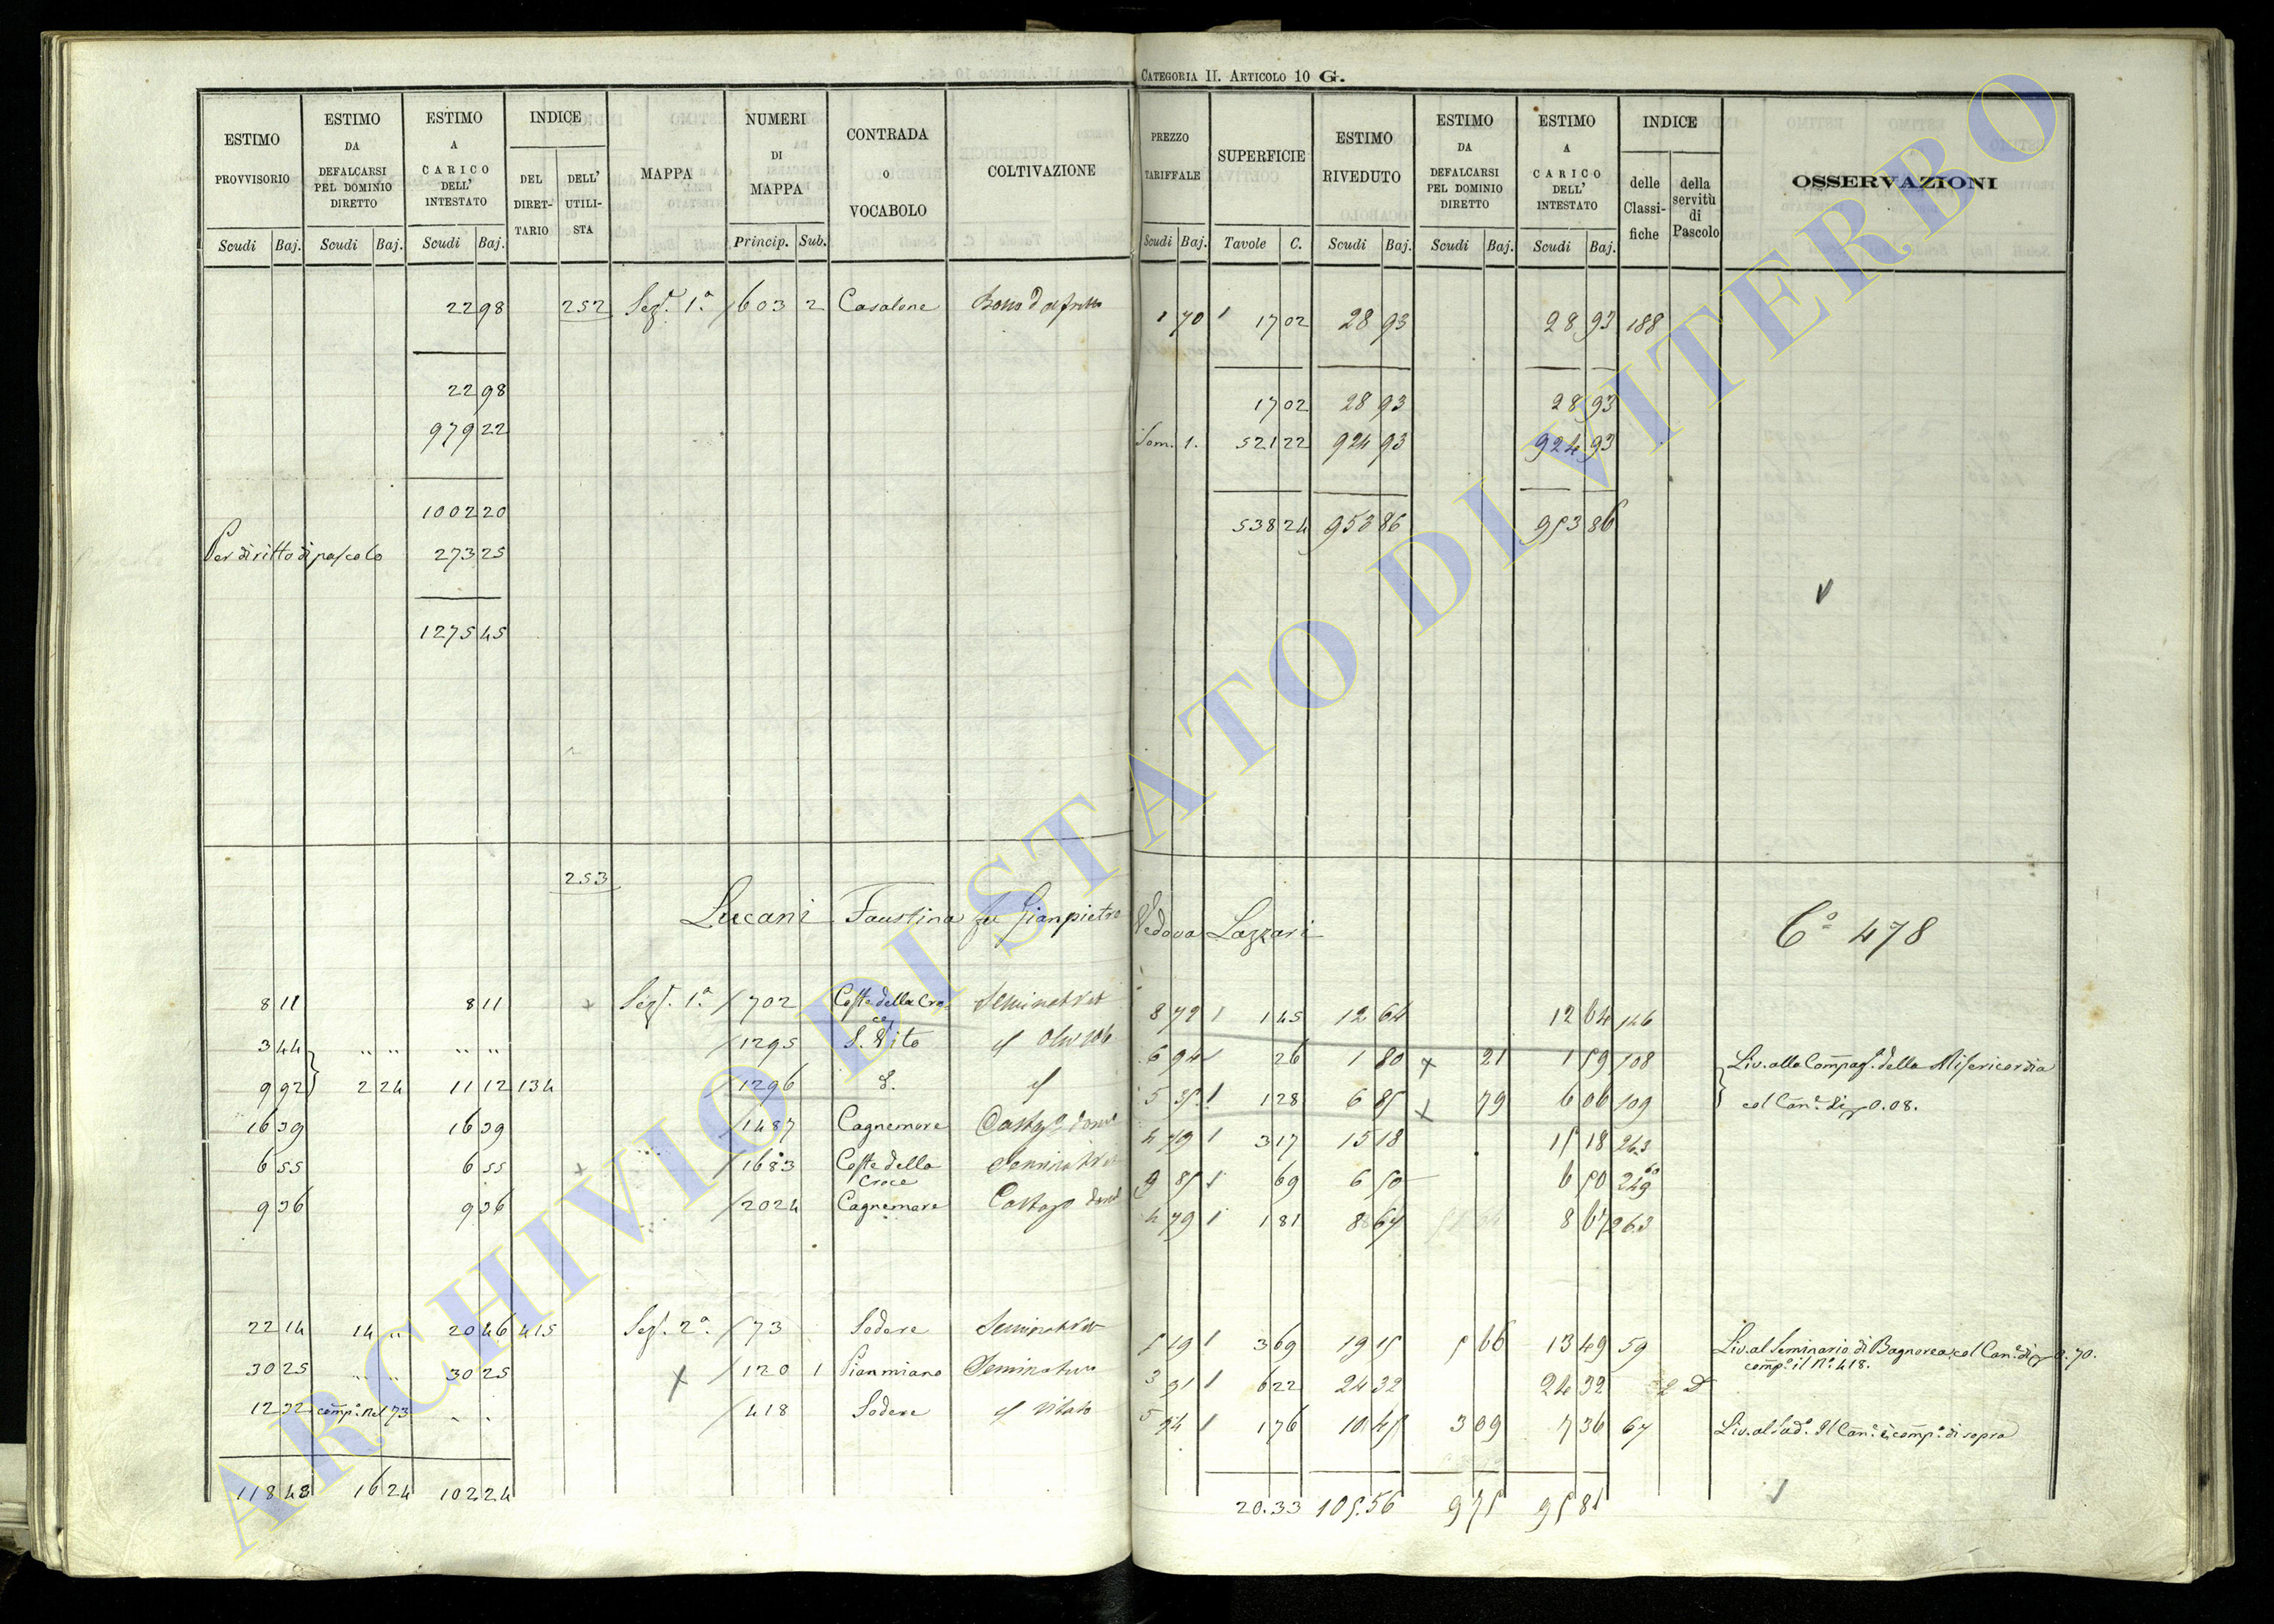 CATEGORIA II. ARTICOLO 10 G.
ESTIMO PROVVISORIO Scudi Baj.
ESTIMO DA DEFALCARSI PEL DOMINIO DIRETTO Scudi Baj.
ESTIMO A CARICO DELL' INTESTATO Scudi Baj.
INDICE DEL DIRET-TARIO DELL' UTILI-STA
MAPPA
NUMERI DI MAPPA Princip. Sub.
CONTRADA o VOCABOLO
COLTIVAZIONE
PREZZO TARIFFALE Scudi Baj.
SUPERFICIE Tavole C.
ESTIMO RIVEDUTO Scudi Baj.
ESTIMO DA DEFALCARSI PEL DOMINIO DIRETTO Scudi Baj.
ESTIMO A CARICO DELL' INTESTATO Scudi Baj.
INDICE delle Classi-fiche della servitù di Pascolo
OSSERVAZIONI
22 98 252 Sez. 1ª 603 2 Casalone 1 70 17 02 28 93 28 93 188
22 98 17 02 28 93 28 93
979 22 Som. 1. 521 22 924 93 924 93
1002 20 538 24 953 86 953 86
Per diritto di pascolo 273 25
1275 45
253
Lucani Faustina fu Gianpietro Vedova Lazzari Cº 478
8 11 8 11 Sez. 1ª 702 Coste della Croce Seminat Vit 8 72 1 45 12 64 12 64 146
3 44 " " " " 1295 S. Vito 6 94 26 1 80 21 1 59 108 Liv. alla Compag. della Misericordia
9 92 2 24 11 12 134 1296 5 35 1 28 6 85 79 6 06 109 col Can. di 0.08.
16 39 16 39 1487 Cagnemore 4 79 3 17 15 18 15 18 263
6 55 6 55 1683 Coste della Croce 9 85 69 6 50 6 50 249
9 36 9 36 2024 Cagnemore 4 79 1 81 8 67 8 67 263
22 14 14 " 20 46 415 Sez. 2ª 73 Sodere Seminat Vit 5 19 3 69 19 15 5 66 13 49 59 Liv. al Seminario di Bagnorea col Can. di 0.70.
comp. il Nº 418.
30 25 30 25 120 1 Pianmiano Seminativo 3 91 6 22 24 32 24 32
12 32 comp. nel 73 418 Sodere Vitato 5 94 1 76 10 45 3 09 7 36 67 Liv. al Sud. Il Can. è comp. di sopra
118 48 16 24 102 24 20.33 105.56 9 75 95 81
ARCHIVIO DI STATO DI VITERBO